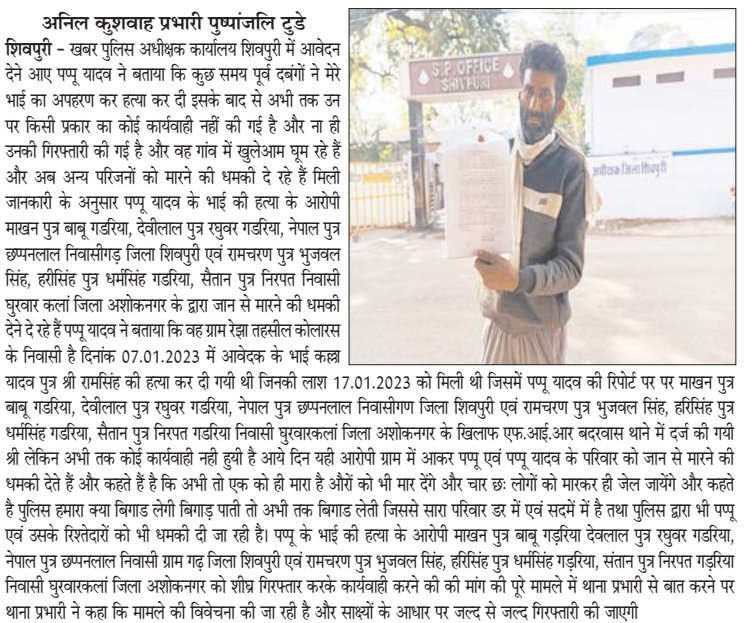 अनिल कुशवाह प्रभारी पुष्पांजलि टुडे
शिवपुरी – खबर पुलिस अधीक्षक कार्यालय शिवपुरी में आवेदन
देने आए पप्पू यादव ने बताया कि कुछ समय पूर्व दबंगों ने मेरे
भाई का अपहरण कर हत्या कर दी इसके बाद से अभी तक उन
पर किसी प्रकार का कोई कार्यवाही नहीं की गई है और ना ही
उनकी गिरफ्तारी की गई है और वह गांव में खुलेआम घूम रहे हैं
और अब अन्य परिजनों को मारने की धमकी दे रहे हैं मिली
जानकारी के अनुसार पप्पू यादव के भाई की हत्या के आरोपी
माखन पुत्र बाबू गडरिया, देवीलाल पुत्र रघुवर गडरिया, नेपाल पुत्र
छप्पनलाल निवासीगड़ जिला शिवपुरी एवं रामचरण पुत्र भुजवल
सिंह, हरीसिंह पुत्र धर्मसिंह गडरिया, सैतान पुत्र निरपत निवासी
घुरवार कलां जिला अशोकनगर के द्वारा जान से मारने की धमकी
देने दे रहे हैं पप्पू यादव ने बताया कि वह ग्राम रेझा तहसील कोलारस
के निवासी है दिनांक 07.01.2023 में आवेदक के भाई कल्ला
यादव पुत्र श्री रामसिंह की हत्या कर दी गयी थी जिनकी लाश 17.01.2023 को मिली थी जिसमें पप्पू यादव की रिपोर्ट पर पर माखन पुत्र
बाबू गडरिया, देवीलाल पुत्र रघुवर गडरिया, नेपाल पुत्र छप्पनलाल निवासीगण जिला शिवपुरी एवं रामचरण पुत्र भुजवल सिंह, हरिसिंह पुत्र
धर्मसिंह गडरिया, सैतान पुत्र निरपत गडरिया निवासी घुरवारकलां जिला अशोकनगर के खिलाफ एफ.आई.आर बदरवास थाने में दर्ज की गयी
श्री लेकिन अभी तक कोई कार्यवाही नही हुयी है आये दिन यही आरोपी ग्राम में आकर पप्पू एवं पप्पू यादव के परिवार को जान से मारने की
धमकी देते हैं और कहते हैं है कि अभी तो एक को ही मारा है औरों को भी मार देंगे और चार छः लोगों को मारकर ही जेल जायेंगे और कहते
है पुलिस हमारा क्या बिगाड लेगी बिगाड़ पाती तो अभी तक बिगाड लेती जिससे सारा परिवार डर में एवं सदमें में है तथा पुलिस द्वारा भी पप्पू
एवं उसके रिश्तेदारों को भी धमकी दी जा रही है। पप्पू के भाई की हत्या के आरोपी माखन पुत्र बाबू गड़रिया देवलाल पुत्र रघुवर गडरिया,
नेपाल पुत्र छप्पनलाल निवासी ग्राम गढ़ जिला शिवपुरी एवं रामचरण पुत्र भुजवल सिंह, हरिसिंह पुत्र धर्मसिंह गड़रिया, संतान पुत्र निरपत गड़रिया
निवासी घुरवारकलां जिला अशोकनगर को शीघ्र गिरफ्तार करके कार्यवाही करने की की मांग की पूरे मामले में थाना प्रभारी से बात करने पर
थाना प्रभारी ने कहा कि मामले की विवेचना की जा रही है और साक्ष्यों के आधार पर जल्द से जल्द गिरफ्तारी की जाएगी
S.P. OFFICE
SHIVPURI
अधीक्षक जिला शिवपुरी